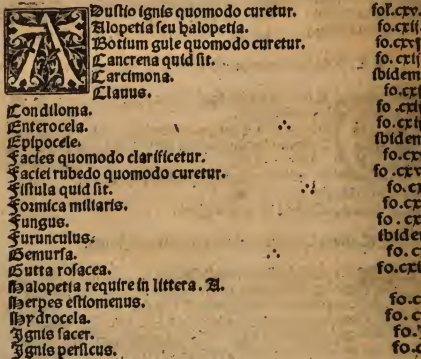 Adustio ignis quomodo curetur. fol.cxv.
Alopetia seu halopetia. fo.cxij
Botium gule quomodo curetur. fo.cxvj
Cancrena quid sit. fo.cxij
Carcimona. Ibidem
Clauus. fo.cxi
Condiloma. fo.cxi
Enterocela. fo.cxi
Epipocele. Ibidem
Facies quomodo clarificetur. fo.cxv
Faciei rubedo quomodo curetur. fo.cxv
Fistula quid sit. fo.c
Formica miliaris. fo.cx
Fungus. fo.cx
Furunculus. Ibidem
Gemursa. fo.c
Gutta rosacea. fo.cxi
Halopetia require in littera. A.
Herpes estiomenus. fo.c
Hydrocela. fo.c
Ignis sacer. fo.
Ignis persicus. fo.c